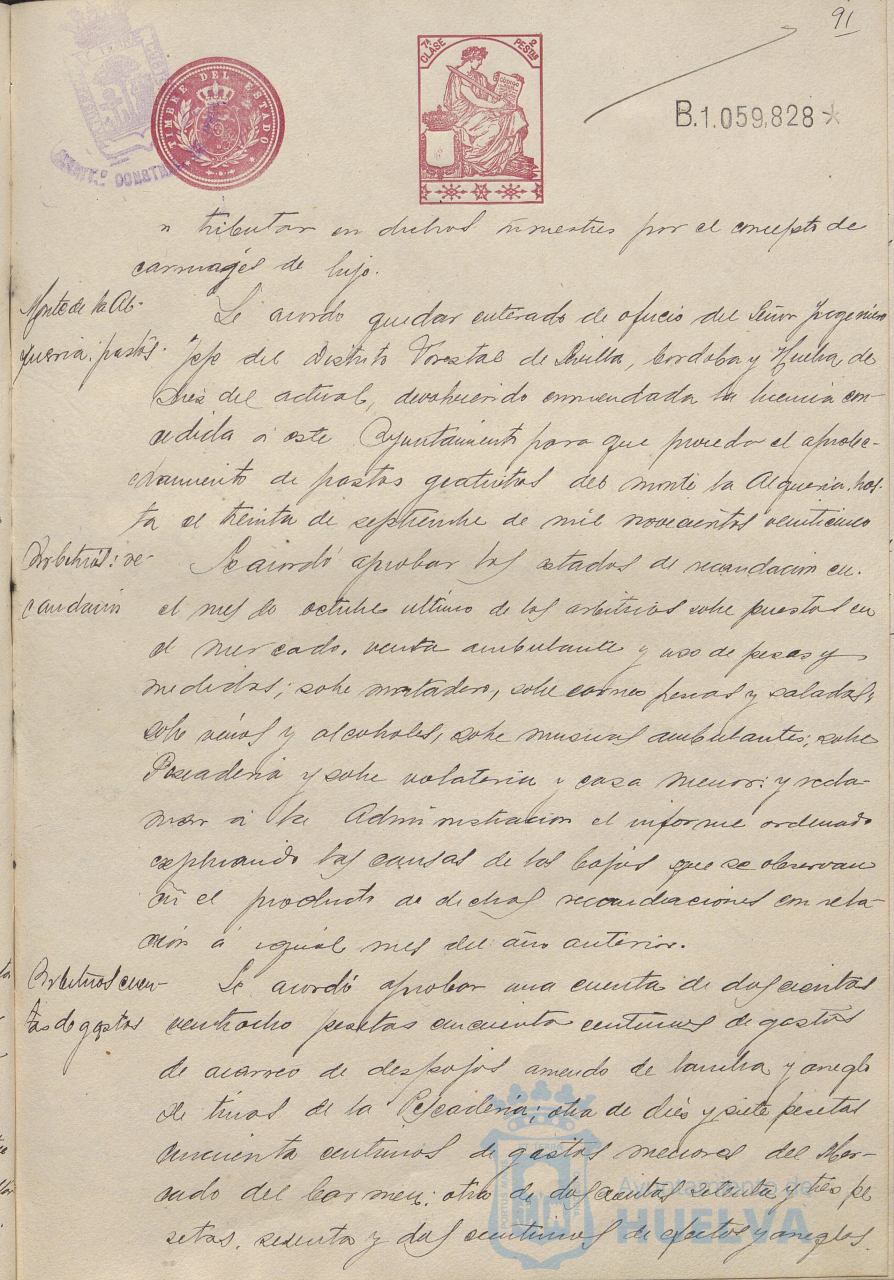 91
TIMBRE DEL ESTADO
7ª CLASE
2 PESTAS
B.1.059,828*
tributar en dichos trimestres por el concepto de
carruajes de lujo.
Monte de la Al-
queria: pastos.
Se acordó quedar enterado de oficio del Señor Ingeniero
Jefe del Distrito Forestal de Sevilla, Cordoba y Huelva de
tres del actual, devolviendo enmendada la licencia con-
cedida á este Ayuntamiento para que proceda el aprobe-
chamiento de pastos gratuitos del monte la Alqueria, has-
ta el treinta de septiembre de mil novecientos veinticinco
Arbitrios: re-
caudación
Se acordó aprobar los estados de recaudación en
el mes de octubre ultimo de los arbitrios sobre puestos en
el mercado, venta ambulante y uso de pesas y
medidas; sobre matadero, sobre carnes frescas y saladas,
sobre vinos y alcoholes, sobre musicas ambulantes; sobre
Pescaderia y sobre volateria y caza menor: y recla-
mar á la Administracion el informe ordenado
explicando las causas de las bajas que se observan
en el producto de dichas recaudaciones con rela-
ción á igual mes del año anterior.
Arbitrios cuen-
tas de gastos
Se acordó aprobar una cuenta de doscientas
veintiocho pesetas cincuenta centimos de gastos
de acarreo de despojos arriendo de lancha y arreglo
de tinas de la Pescaderia; otra de diés y siete pesetas
cincuenta centimos de gastos menores del Mer-
cado del Carmen; otra de doscientas setenta y tres pe
setas, sesenta y dos centimos de efectos y arreglos
Ayuntamiento de
HUELVA